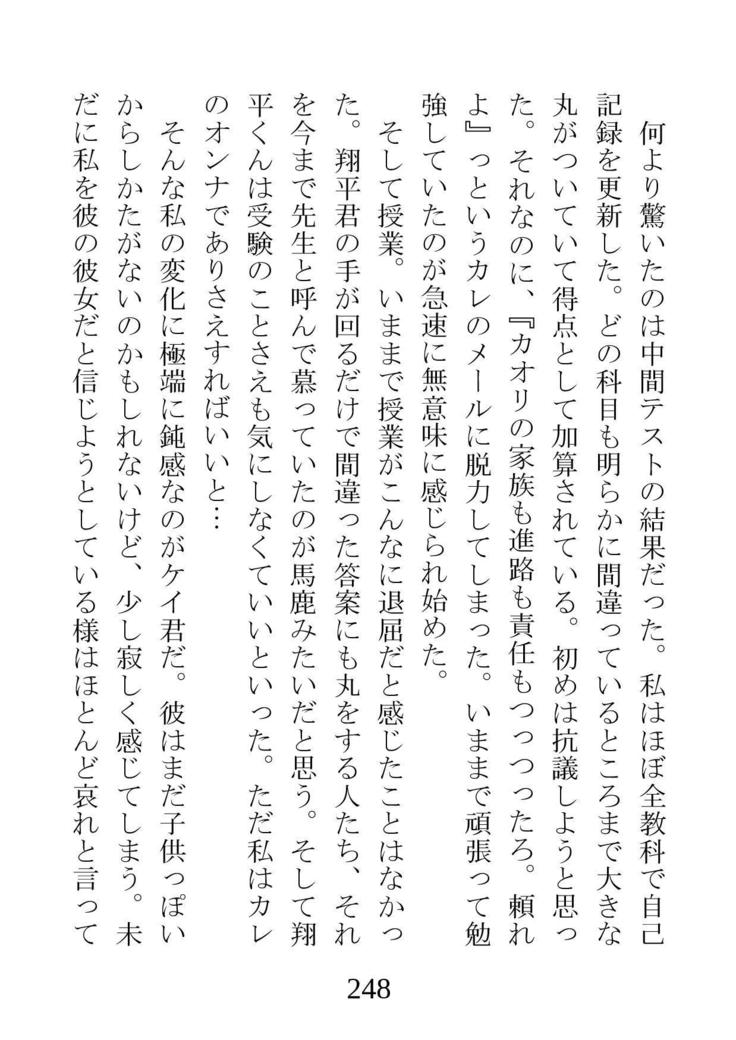 何より驚いたのは中間テストの結果だった。私はほぼ全教科で自己
記録を更新した。どの科目も明らかに間違っているところまで大きな
丸がついていて得点として加算されている。初めは抗議しようと思っ
た。それなのに、『カオリの家族も進路も責任もつっつったろ。頼れ
よ』っというカレのメールに脱力してしまった。いままで頑張って勉
強していたのが急速に無意味に感じられ始めた。
そして授業。いままで授業がこんなに退屈だと感じたことはなかっ
た。翔平君の手が回るだけで間違った答案にも丸をする人たち、それ
を今まで先生と呼んで慕っていたのが馬鹿みたいだと思う。そして翔
平くんは受験のことさえも気にしなくていいといった。ただ私はカレ
のオンナでありさえすればいいと…
そんな私の変化に極端に鈍感なのがケイ君だ。彼はまだ子供っぽい
からしかたがないのかもしれないけど、少し寂しく感じてしまう。未
だに私を彼の彼女だと信じようとしている様はほとんど哀れと言って
248